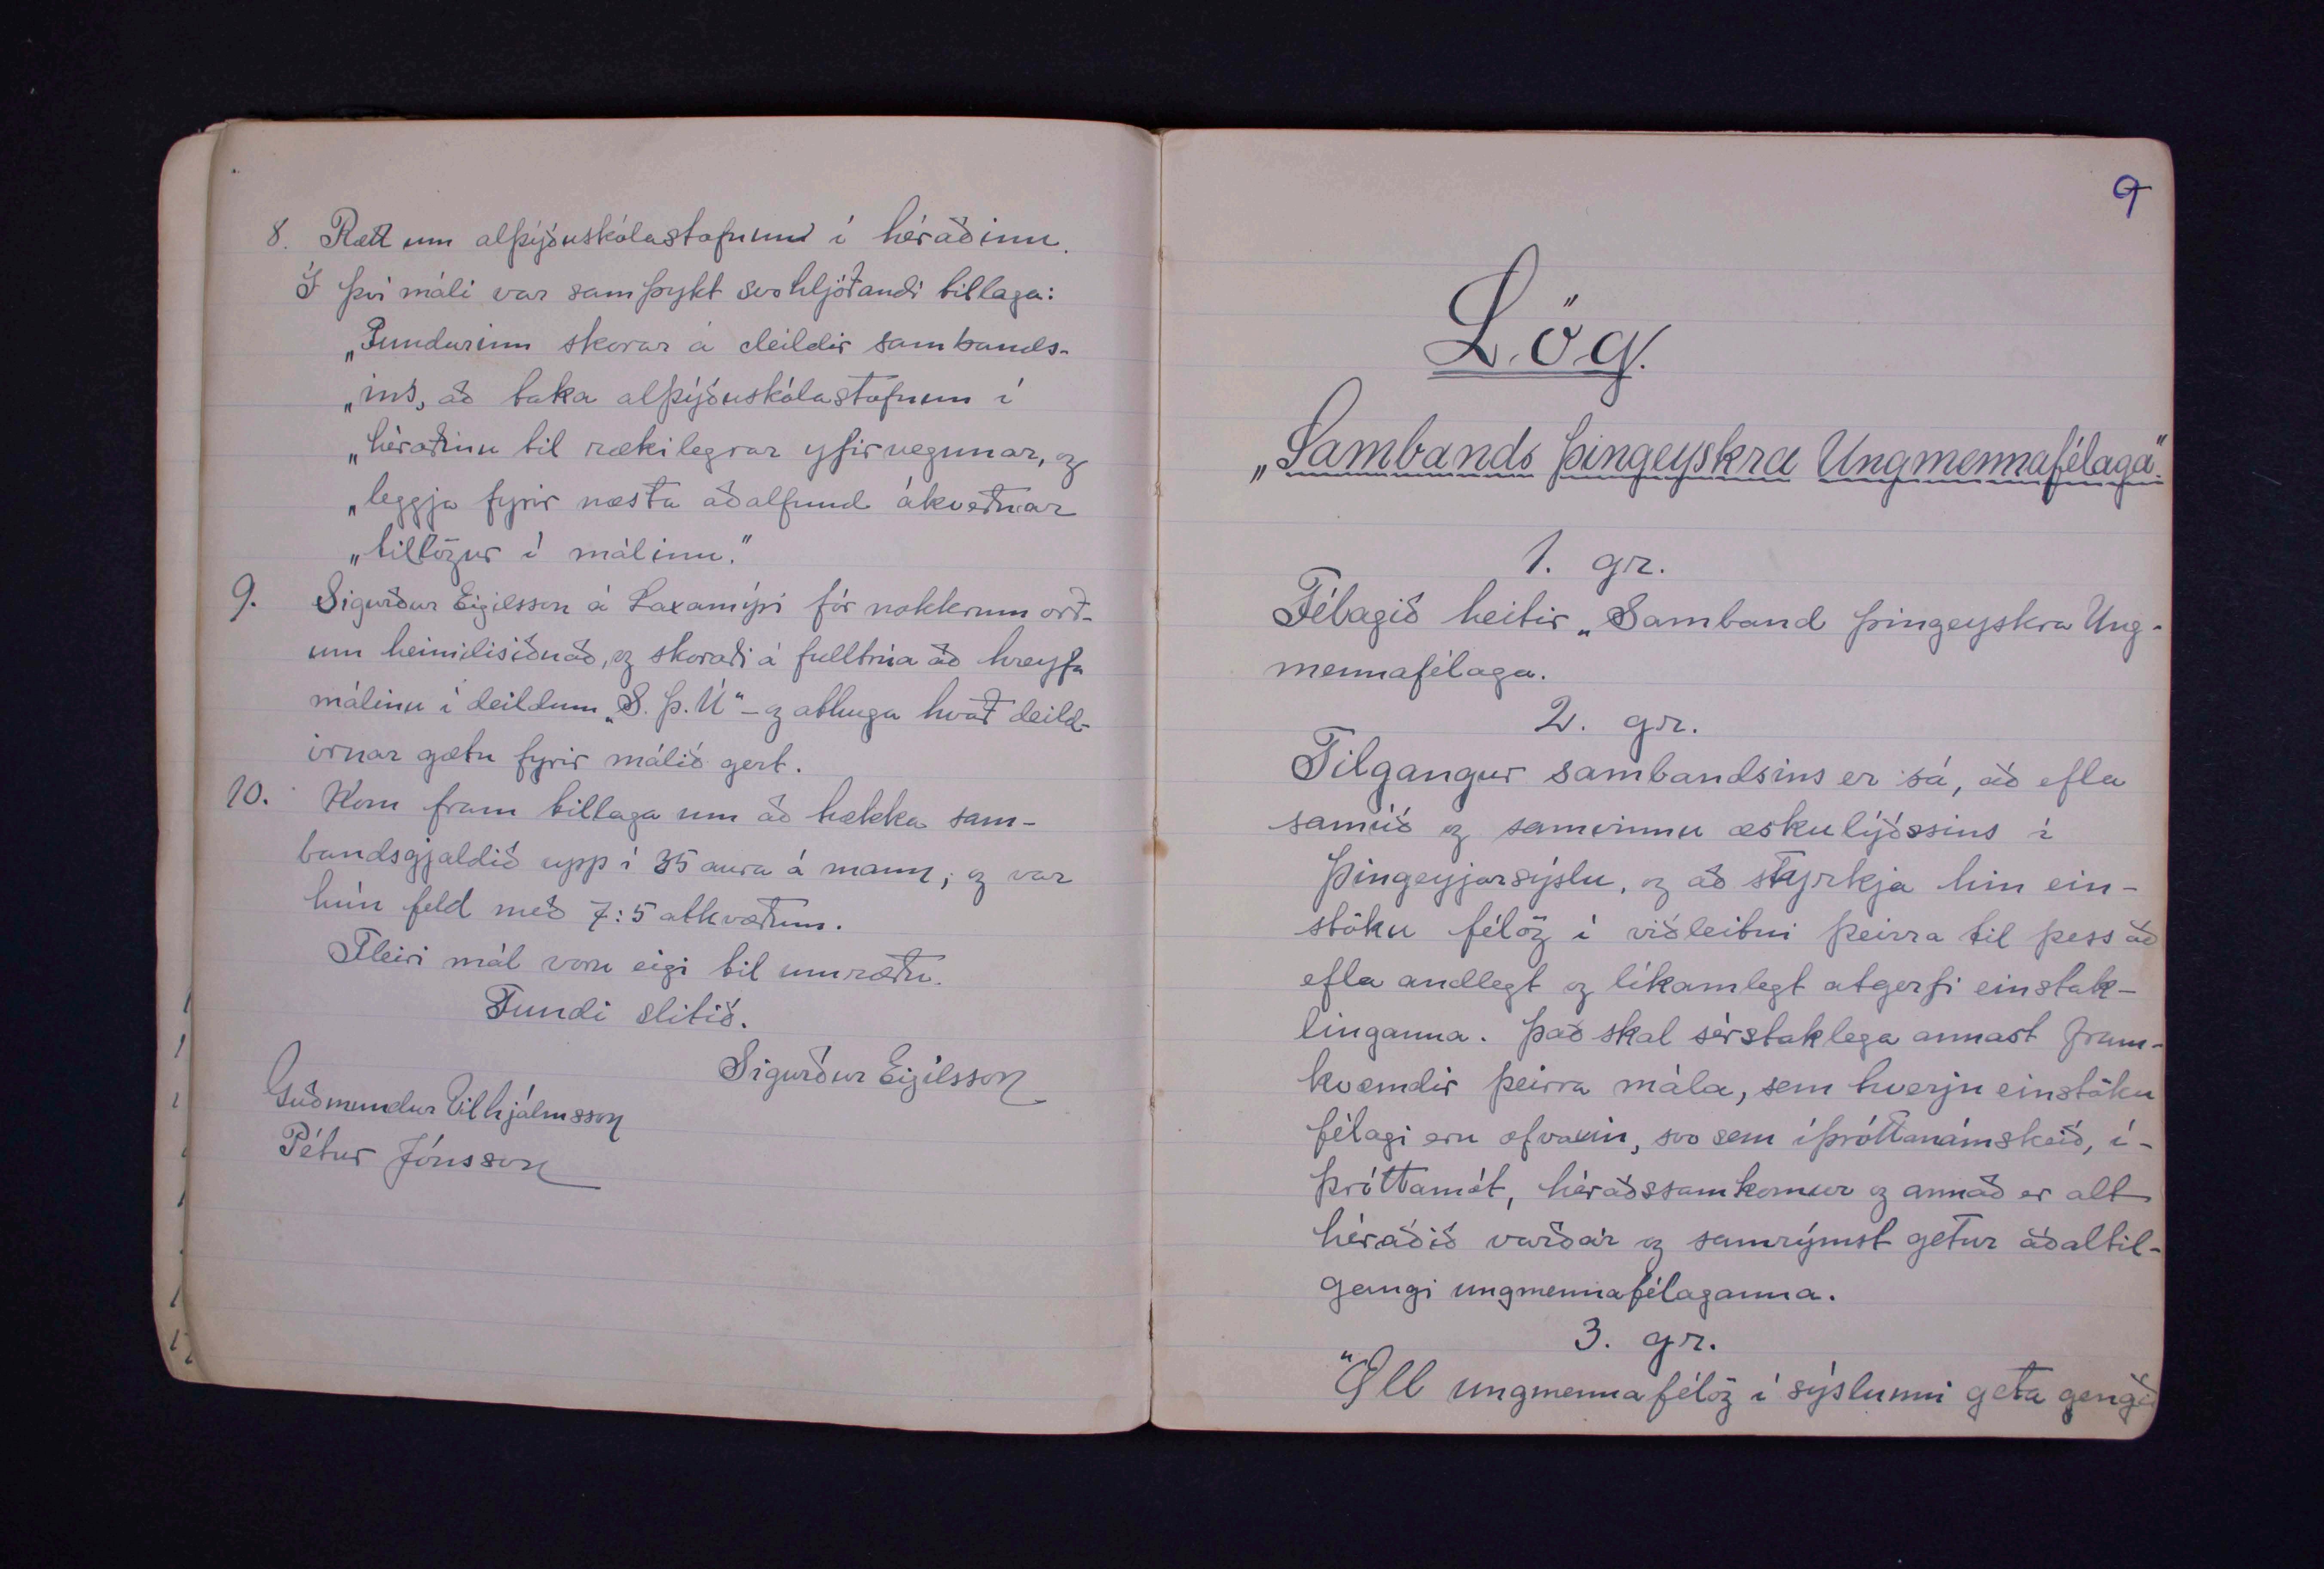 8. Rætt um alþýðuskólastofnun í héraðinu.
Í því máli var samþykt svohljóðandi tillaga:
„Fundurinn skorar á deildir sambands-
„ins, að taka alþýðuskólastofnun í
„héraðinu til rækilegrar yfirvegunar, og
„leggja fyrir næsta aðalfund ákveðnar
„tillögur í málinu.“
9. Sigurður Egilsson á Laxamýri fór nokkrum orð-
um heimilisiðnað, og skoraði á fulltrúa að hreyfa
málinu í deildum „S. Þ. U“ - og athuga hvað deild-
irnar gætu fyrir málið gert.
10. Kom fram tillaga um að hækka sam-
bandsgjaldið upp í 35 aura á mann, og var
hún feld með 7:5 atkvæðum.
Fleiri mál voru eigi til umræðu.
Fundi slitið.
Sigurður Egilsson
Guðmundur Vilhjálmsson
Pétur Jónsson
9
Lög.
„Sambands Þingeyskra Ungmennafélaga“.
1. gr.
Félagið heitir „Samband Þingeyskra Ung-
mennafélaga.
2. gr.
Tilgangur sambandsins er sá, að efla
samúð og samvinnu æskulýðssins í
Þingeyjarsýslu, og að styrkja hin ein-
stöku félög í viðleitni þeirra til þess að
efla andlegt og líkamlegt atgerfi einstak-
linganna. Það skal sérstaklega annast fram-
kvæmdir þeirra mála, sem hverju einstöku
félagi eru ofvaxin, svo sem íþróttanámskeið, í-
þróttamót, héraðssamkomur og annað er alt
héraðið varðar og samrýmst getur aðaltil-
gangi ungmennafélaganna.
3. gr.
Öll ungmennafélög í sýslunni geta gengið